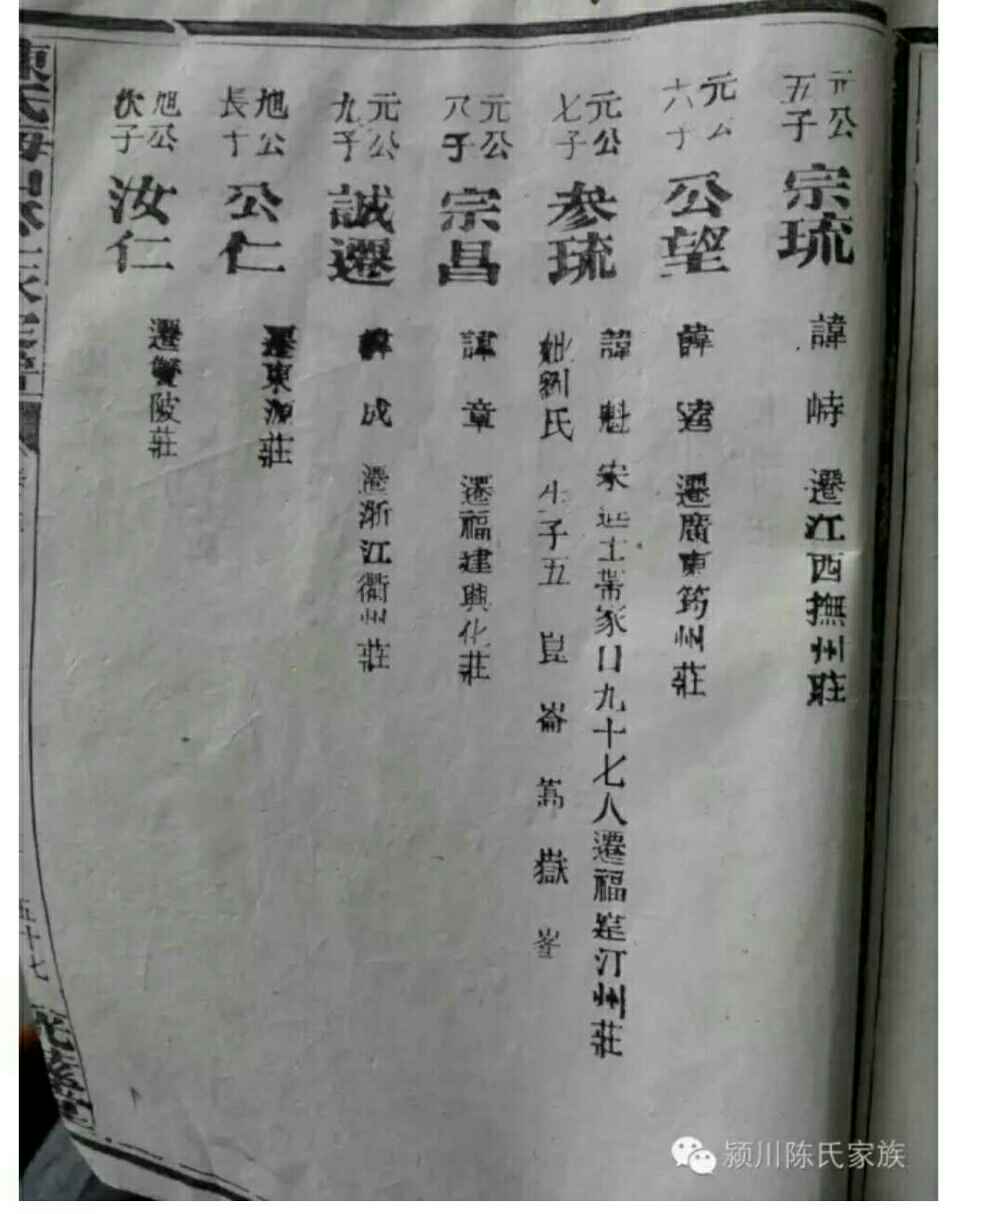 元公
五子
宗琉
諱峙 遷江西撫州莊
元公
六子
公望
諱達 遷廣東筠州莊
元公
七子
参琉
諱魁 宋進士帶家口九十七人遷福建汀州莊
妣劉氏 生子五 崑 崙 嵩 嶽 峯
元公
八子
宗昌
諱章 遷福建興化莊
元公
九子
誠遷
諱成 遷浙江衢州莊
旭公
長子
公仁
遷東源莊
旭公
次子
汝仁
遷蟹陂莊
陳氏
五十七
颍川陈氏家族